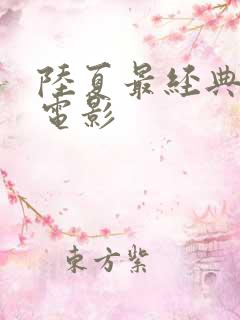 陸夏最經典
電影
東方紫